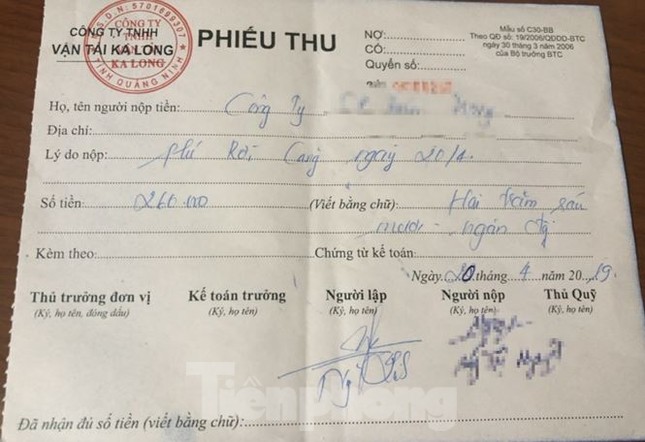 M.S.D.N: 5701689307
CÔNG TY
TNHH
KA LONG
TỈNH QUẢNG NINH
CÔNG TY TNHH
VẬN TẢI KA LONG
PHIẾU THU
NỢ:
CÓ:
Quyển số:
Mẫu số C30-BB
Theo QĐ số: 19/2006/QĐDD-BTC
ngày 30 tháng 3 năm 2006
của Bộ trưởng BTC
Họ, tên người nộp tiền: Công Ty
Địa chỉ:
Lý do nộp: phí Rời Cảng ngày 20/4.
Số tiền: 260.000 (Viết bằng chữ): Hai trăm sáu
mươi ngàn
Kèm theo: Chứng từ kế toán:
Ngày 20 tháng 4 năm 2019.
Thủ trưởng đơn vị Kế toán trưởng Người lập Người nộp Thủ Quỹ
(Ký, họ tên, đóng dấu) (Ký, họ tên) (Ký, họ tên) (Ký, họ tên) (Ký, họ tên)
Tiền Phong
Đã nhận đủ số tiền (viết bằng chữ):